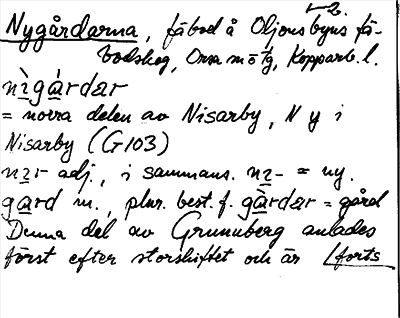 ✓2.
Nygårdarna, fäbod å Oljonsbyns fä-
bodskog, Orsa Kopparb. l.
nìgárdar
= norra delen av Nisarby, N y i
Nisarby (G 103)
adj., i sammans. = ny.
gard m., plur. best. f. gàrdar = gård
Denna del av Grunuberg anlades
först efter storskiftet och är /forts